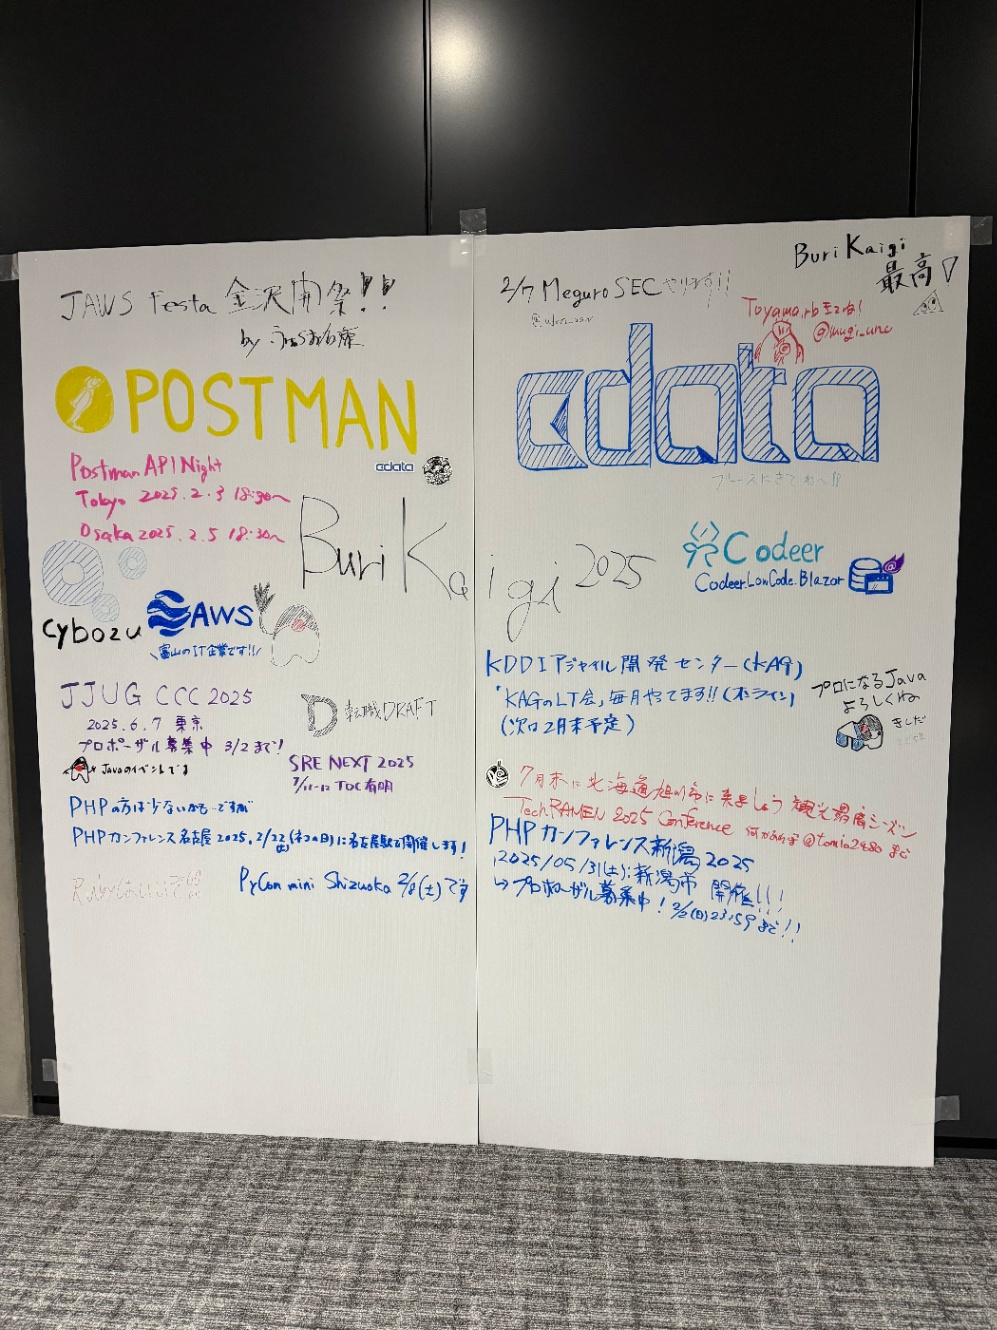 JAWS Festa 金沢開祭!!
by
POSTMAN
Postman API Night
Tokyo 2025.2.3 18:30〜
Osaka 2025.2.5 18:30〜
cdata
Buri Kaigi 2025
cybozu
AWS
富山のIT企業です!!
JJUG CCC 2025
2025.6.7 東京
プロポーザル募集中 3/2まで!
Javaのイベントです
転職DRAFT
SRE NEXT 2025
7/11-12 TOC有明
PHPの方は少ないかも…ですが
PHPカンファレンス名古屋 2025.2/22(土)(ネコの日)に名古屋駅で開催します!
PyCon mini Shizuoka 2/8(土)です
Buri Kaigi
最高
2/7 MeguroSEC やります!!
Toyama.rb
@mugi_uno
cdata
ブースにきてね〜!!
Codeer
Codeer.LowCode.Blazor
KDDIアジャイル開発センター(KAG)
KAGのLT会,毎月やってます!!(オンライン)
(次回2月末予定)
プロになるJava
よろしくね
きしだ
7月末に北海道旭川市に来ましょう 観光最高シーズン
TechRAMEN 2025 Conference 何かあれば @tomio2480 まで
PHPカンファレンス新潟2025
2025/05/31(土):新潟市 開催!!!
→プロポーザル募集中! 2/2(日)23:59まで!!